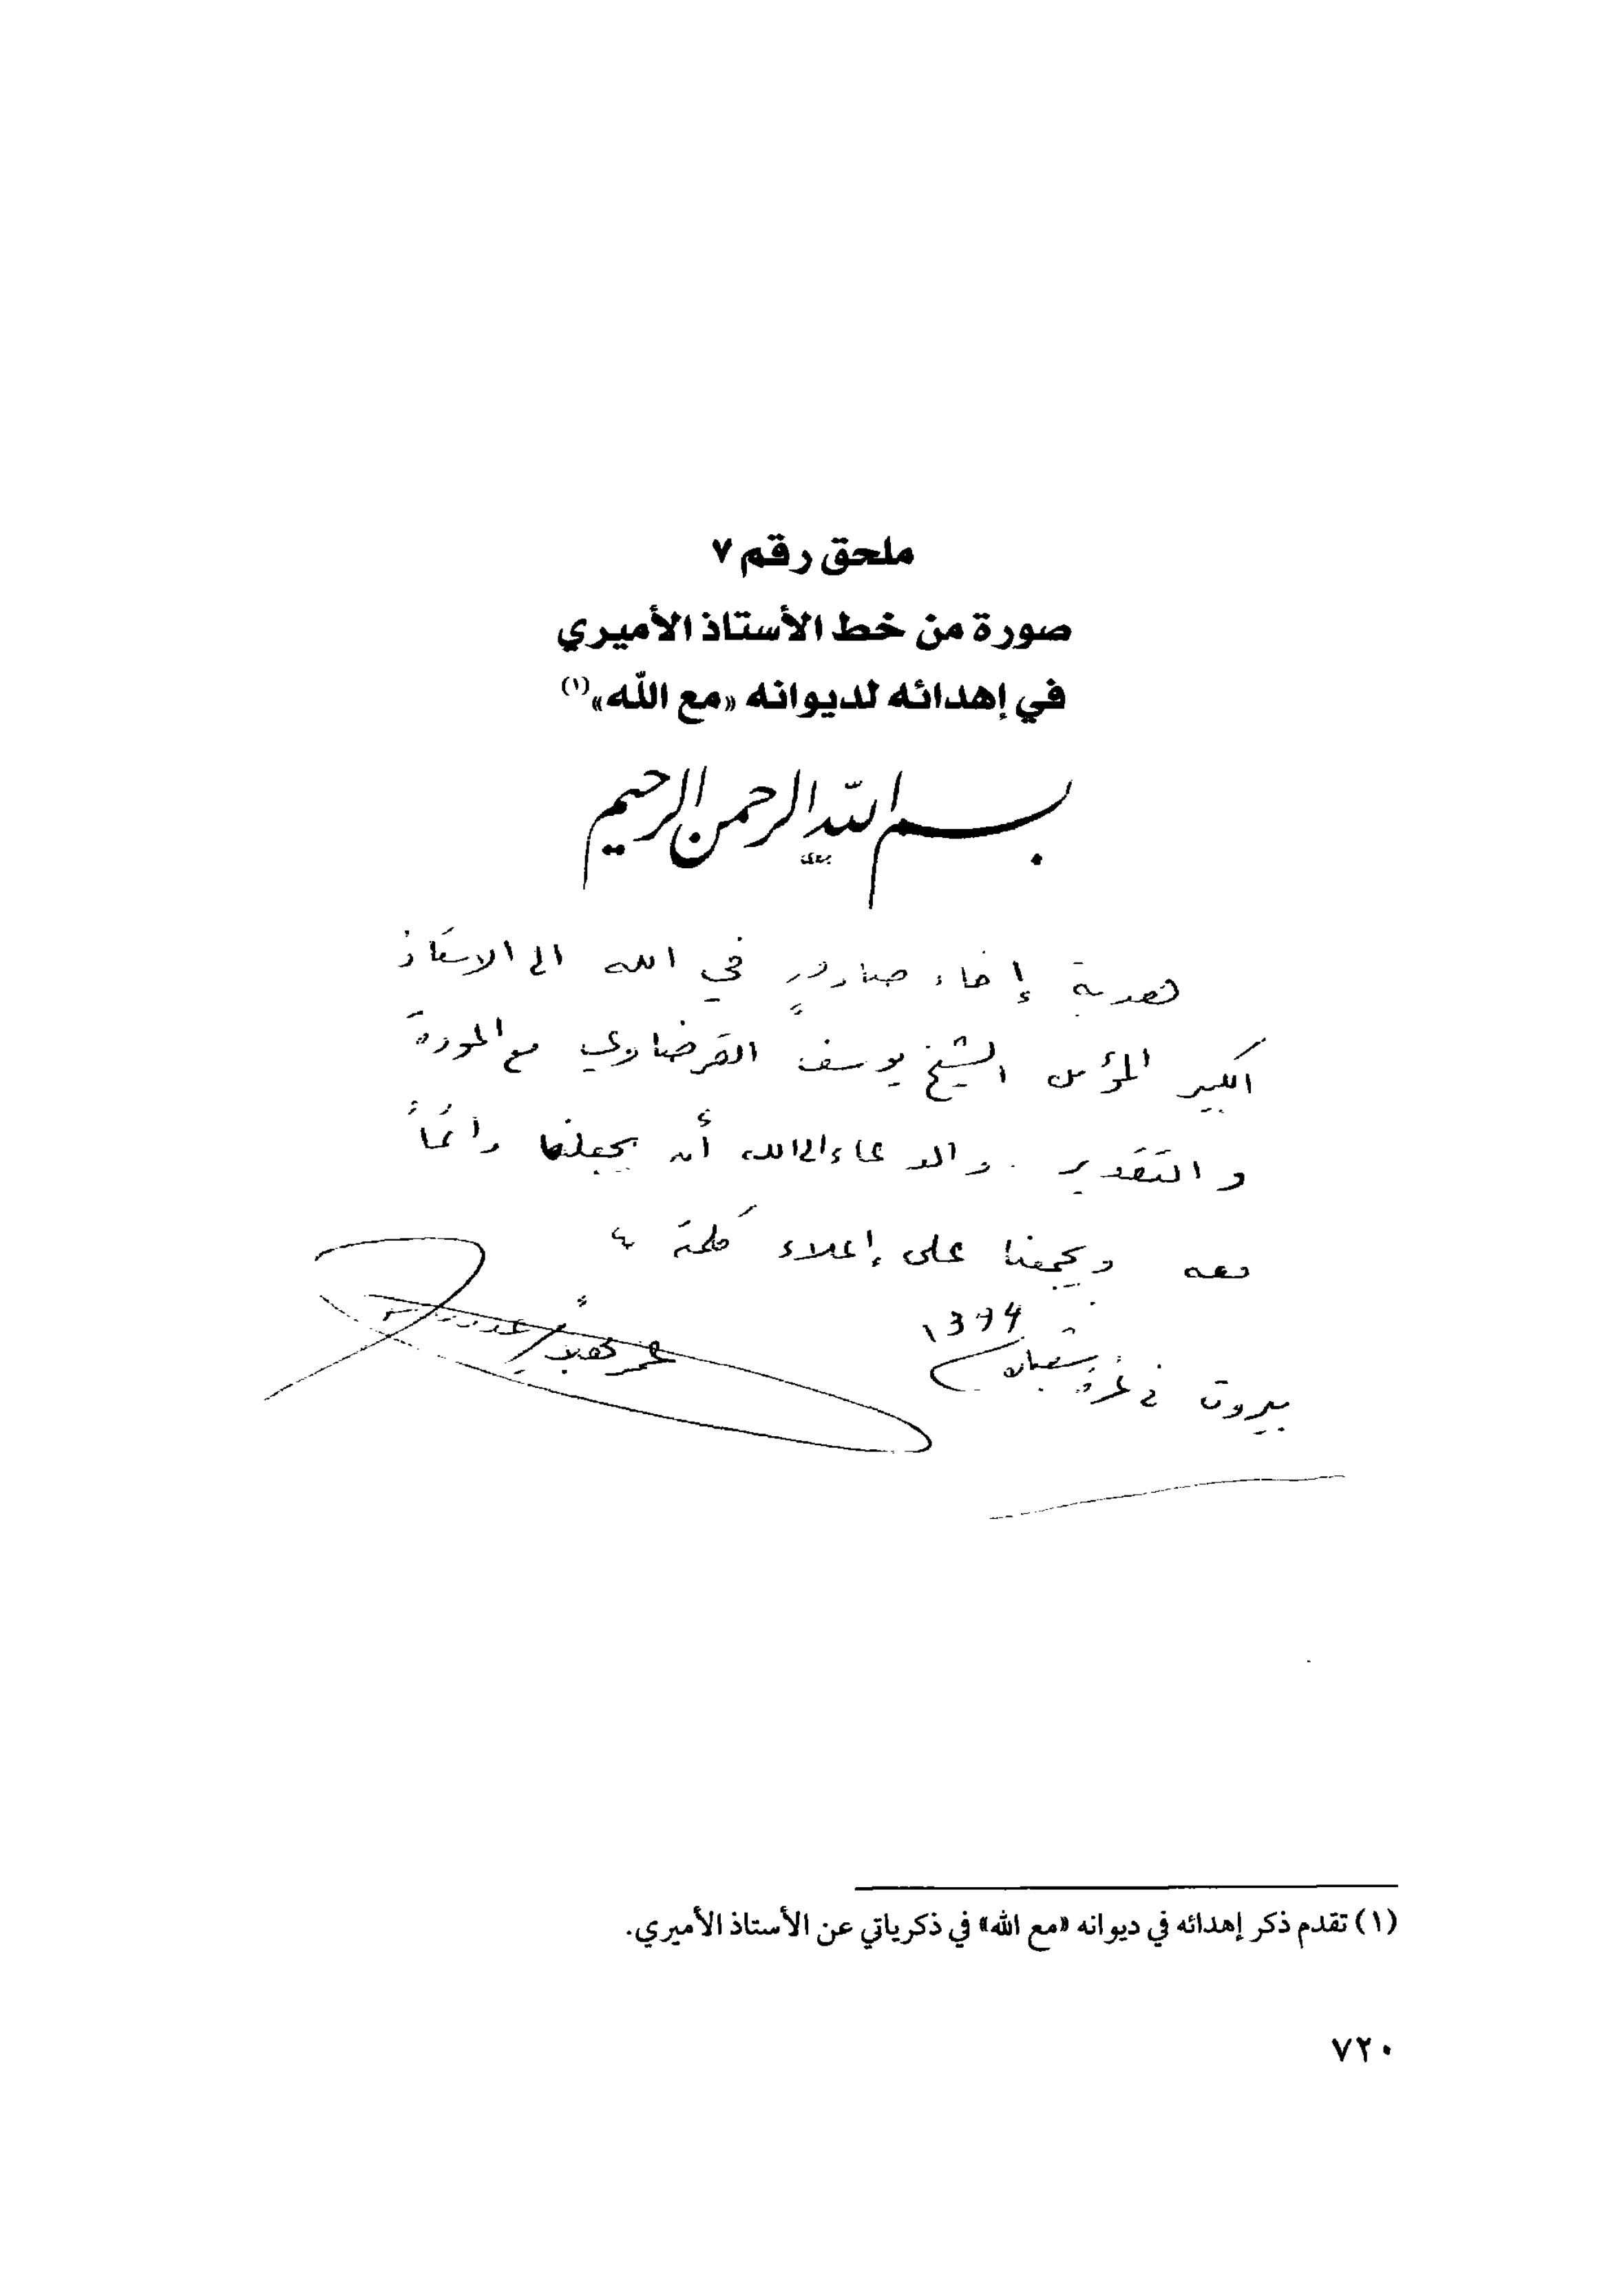 ملحق رقم ٧
صورة من خط الأستاذ الأميري
في إهدائه لديوانه «مع الله»(١)
بسم الله الرحمن الرحيم
هدية إخاء صادق في الله الى الاستاذ
الكبير المؤمن الشيخ يوسف القرضاوي مع المودة
والتقدير . والدعاء الى الله أن يجعلنا دائماً
معه ويجمعنا على إعلاء كلمته
عمر بهاء
بيروت في غرة شعبان
(١) تقدم ذكر إهدائه في ديوانه «مع الله» في ذكرياتي عن الأستاذ الأميري.
٧٢٠